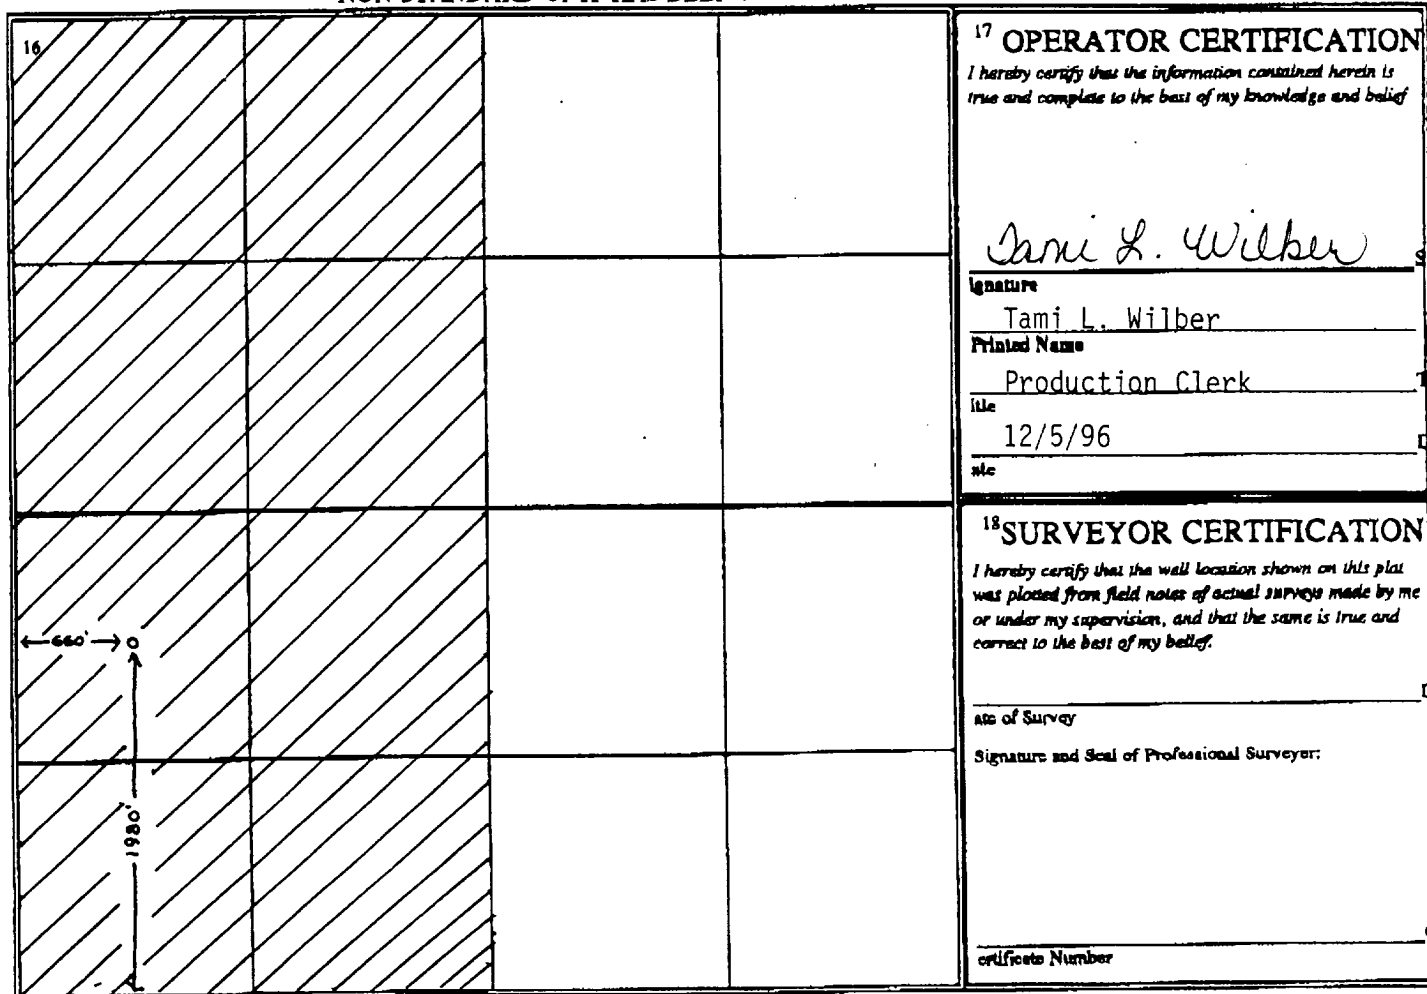 16
660'
1980'
17 OPERATOR CERTIFICATION
I hereby certify that the information contained herein is
true and complete to the best of my knowledge and belief
Tami L. Wilber
S
ignature
Tami L. Wilber
Printed Name
Production Clerk
T
itle
12/5/96
D
ate
18 SURVEYOR CERTIFICATION
I hereby certify that the well location shown on this plat
was plotted from field notes of actual surveys made by me
or under my supervision, and that the same is true and
correct to the best of my belief.
D
ate of Survey
Signature and Seal of Professional Surveyer:
ertificate Number